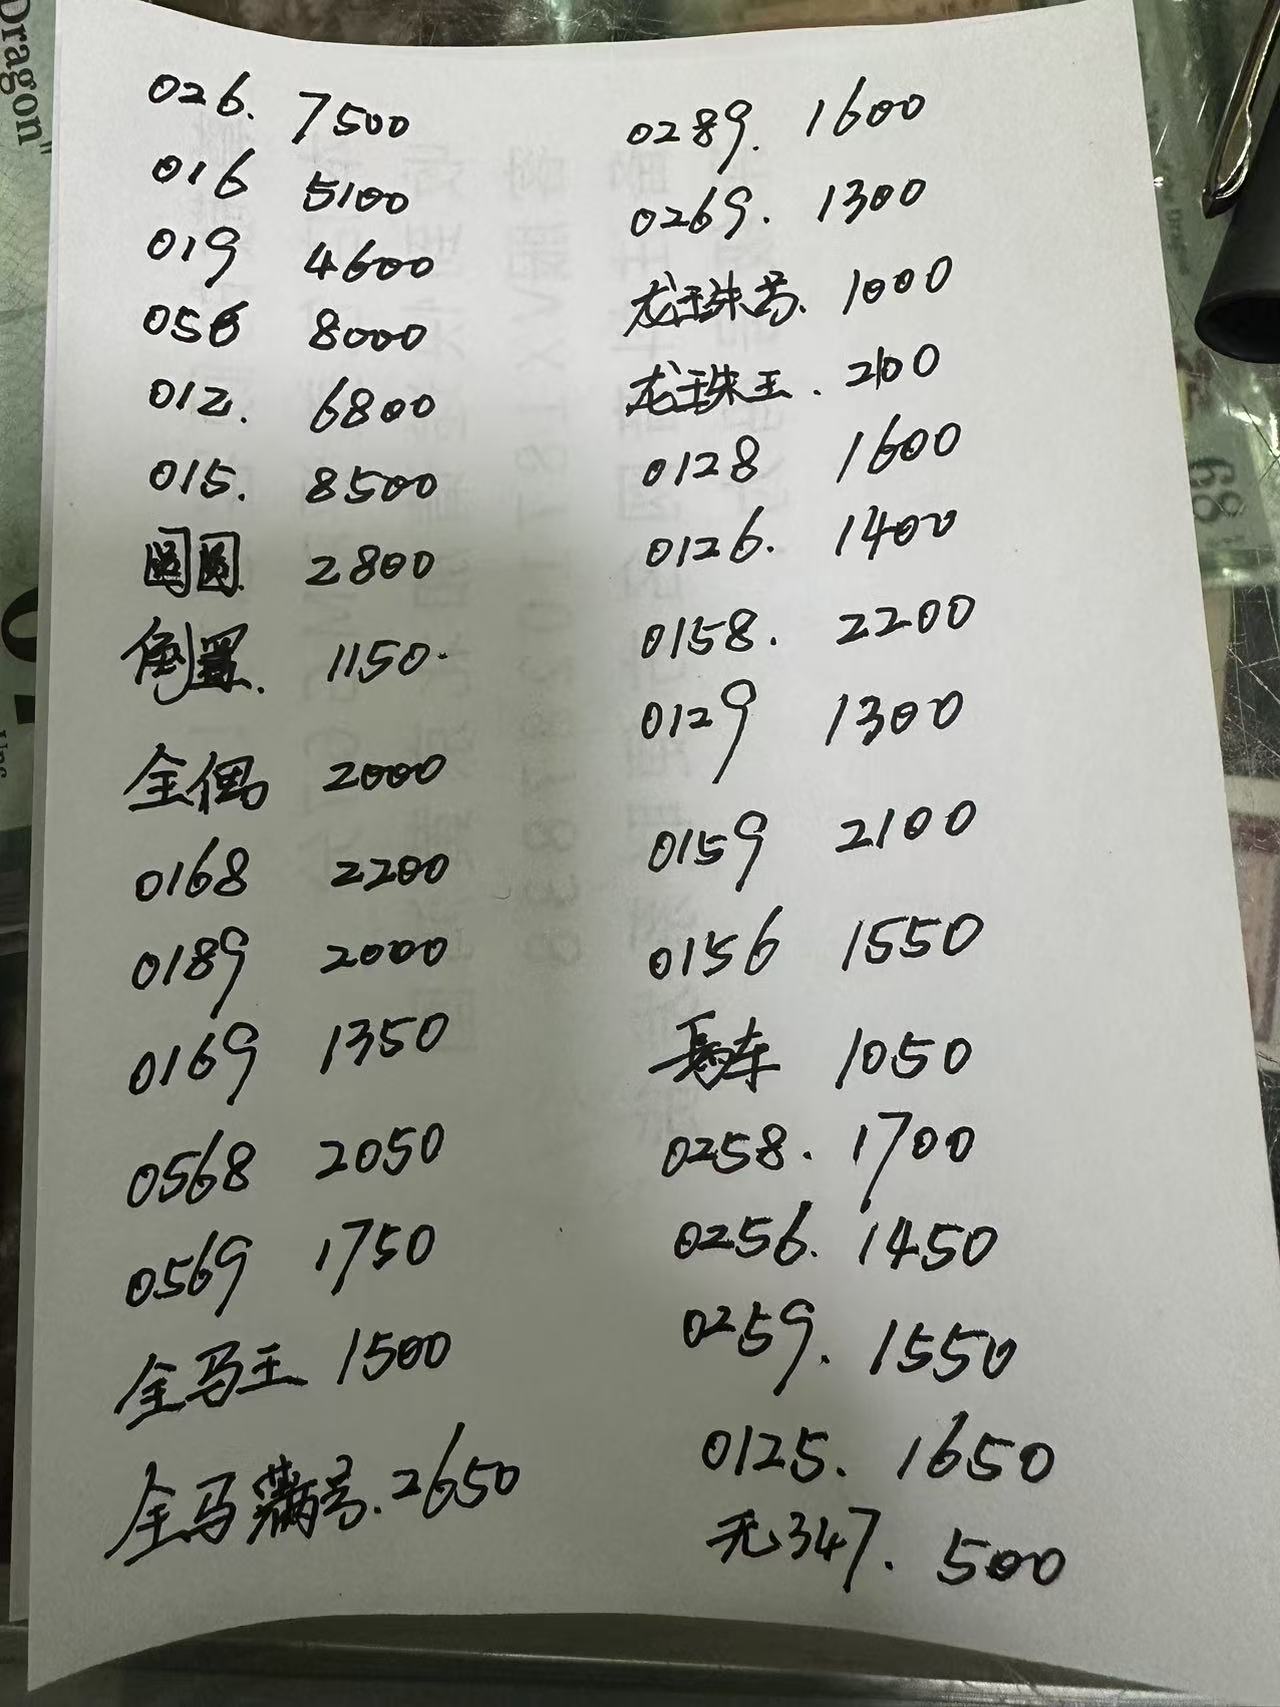 Dragon"
026. 7500
016 5100
019 4600
056 8000
012. 6800
015. 8500
圆圆 2800
倒置. 1150.
全偶 2000
0168 2200
0189 2000
0169 1350
0568 2050
0569 1750
全马王 1500
全马满号. 2650
0289. 1600
0269. 1300
龙珠号. 1000
龙珠王. 2100
0128 1600
0126. 1400
0158. 2200
0129 1300
0159 2100
0156 1550
1050
0258. 1700
0256. 1450
0259. 1550
0125. 1650
无347. 500
68